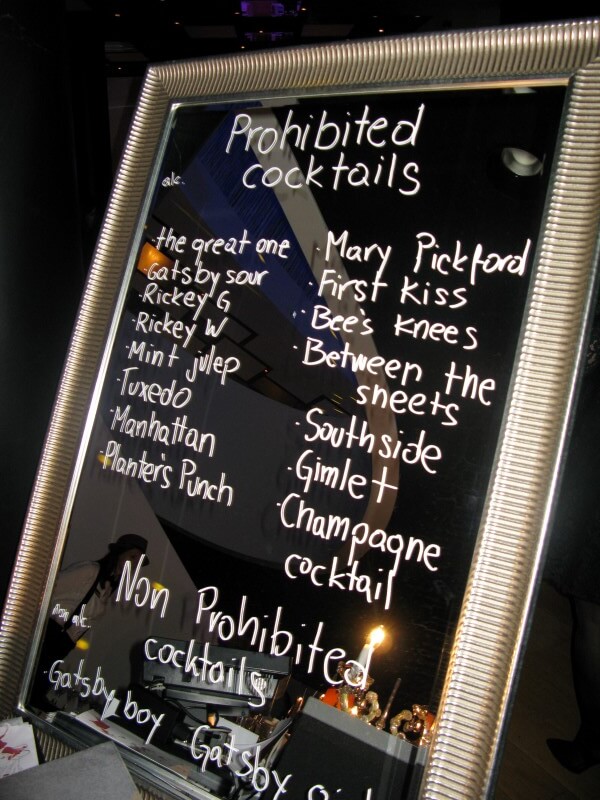 Prohibited
cocktails
alc.
·the great one
·Gatsby sour
·Rickey G
·Rickey W
·Mint julep
·Tuxedo
·Manhattan
·Planter's Punch
·Mary Pickford
·First kiss
·Bee's knees
·Between the
sheets
·Southside
·Gimlet
·Champagne
cocktail
Non Prohibited
Non alc.
cocktails
·Gatsby boy ·Gatsby